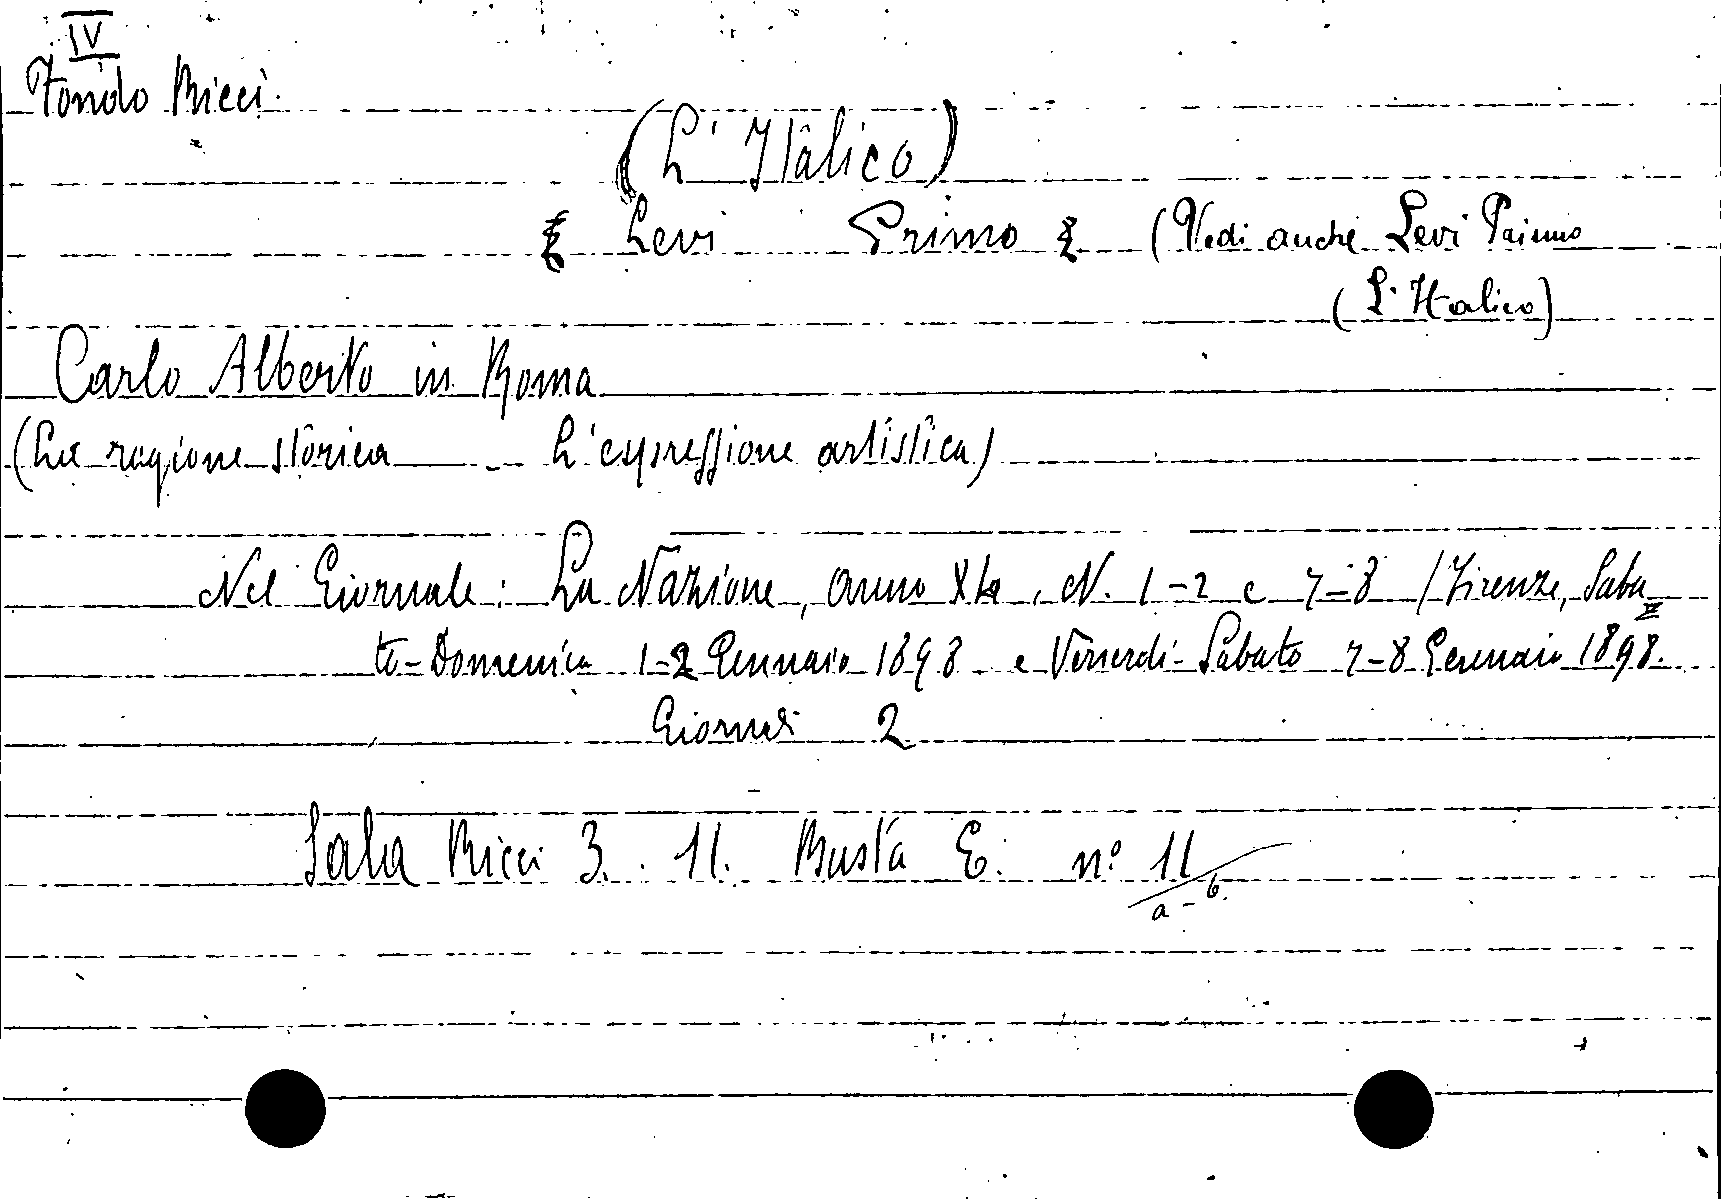 IV
Fondo Ricci
(L'Italico)
Levi Primo (Vedi anche Levi Primo
(L'Italico)
Carlo Alberto in Roma
(La ragione storica - L'espressione artistica)
Nel Giornale: La Nazione, anno XL, N. 1-2 e 7-8 (Firenze, Saba
to-Domenica 1-2 Gennaio 1898 e Venerdì-Sabato 7-8 Gennaio 1898.
Giornali 2
Sala Ricci 3. 11. Busta E. n.° 11
a-b.